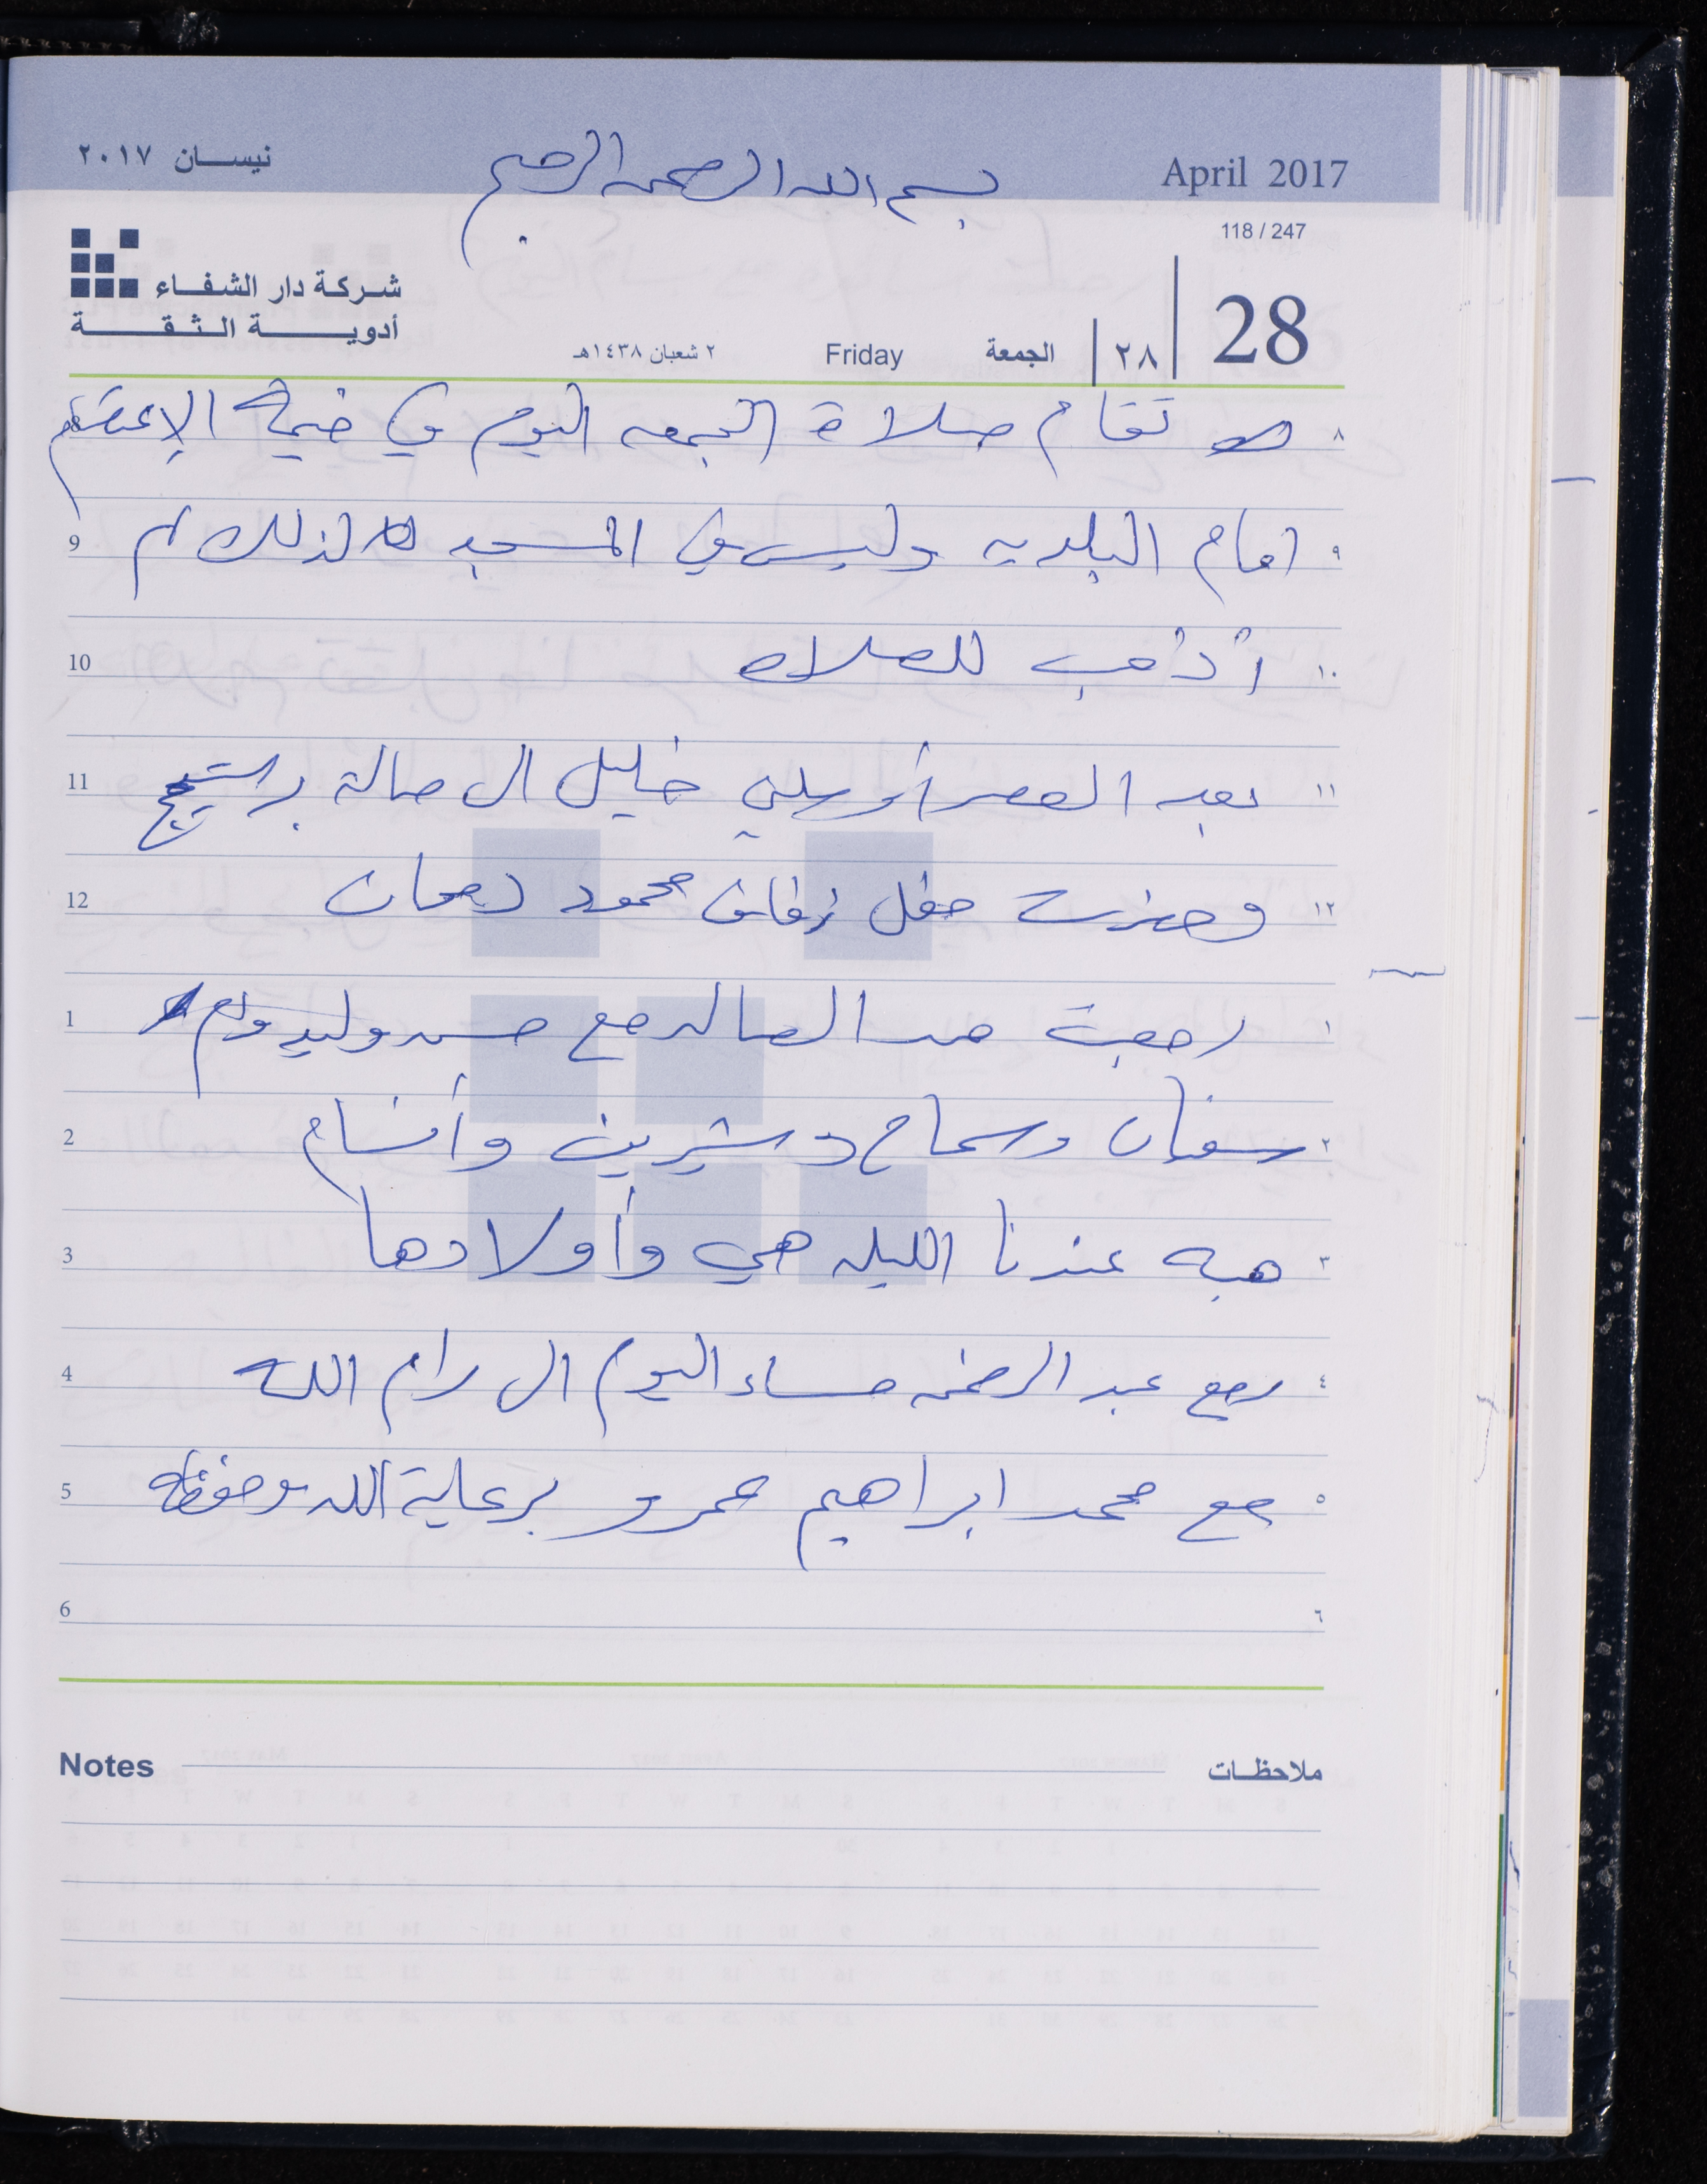 نيسان ٢٠١٧
بسم الله الرحمن الرحيم
April 2017
118 / 247
شركة دار الشفاء
أدوية الثقة
٢ شعبان ١٤٣٨هـ
Friday
الجمعة
٢٨
28
٨ تقام صلاة الجمعه اليوم في خيمة الإعتصام
9 امام البلديه وليس في المسجد لذلك لم ٩
10 أذهب للصلاه ١٠
11 بعد العصر أوصلني خليل الى صالة برستيج ١١
12 وحضرت حفل زفاف محمود نعمان ١٢
1 رجعت من الصاله مع حسن وليد ومع ١
2 سفيان وسماح وشيرين وأنسام ٢
3 هبه عندنا الليله هي وأولادها ٣
4 رجع عبد الرحمن مساء اليوم الى رام الله ٤
5 مع محمد ابراهيم عمرو برعاية الله وحفظه ٥
6 ٦
Notes ملاحظات